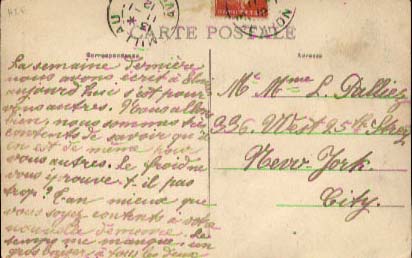 MILLAU
CARTE POSTALE
Correspondance
Adresse
La semaine dernière
nous avons écrit à
aujourd'hui c'est pour
vous autres. Nous allons
bien, nous sommes très
contents de savoir qu'il
en est de même pour
vous autres. Le froid ne
vous y trouve-t-il pas
trop? Tan mieux que
vous soyez contents à votre
nouvelle demeure. Le
temps me manque, un
gros bonjour à tous les deux
Mr Mme L.
336 West 25th Street
New York.
City.